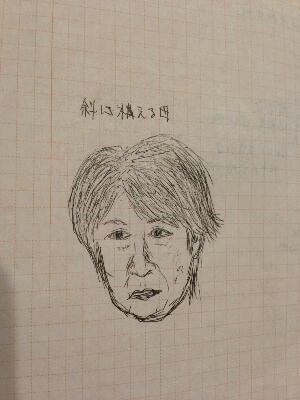 斜に構える母